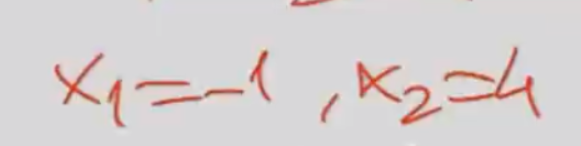 x₁=-1, x₂=4